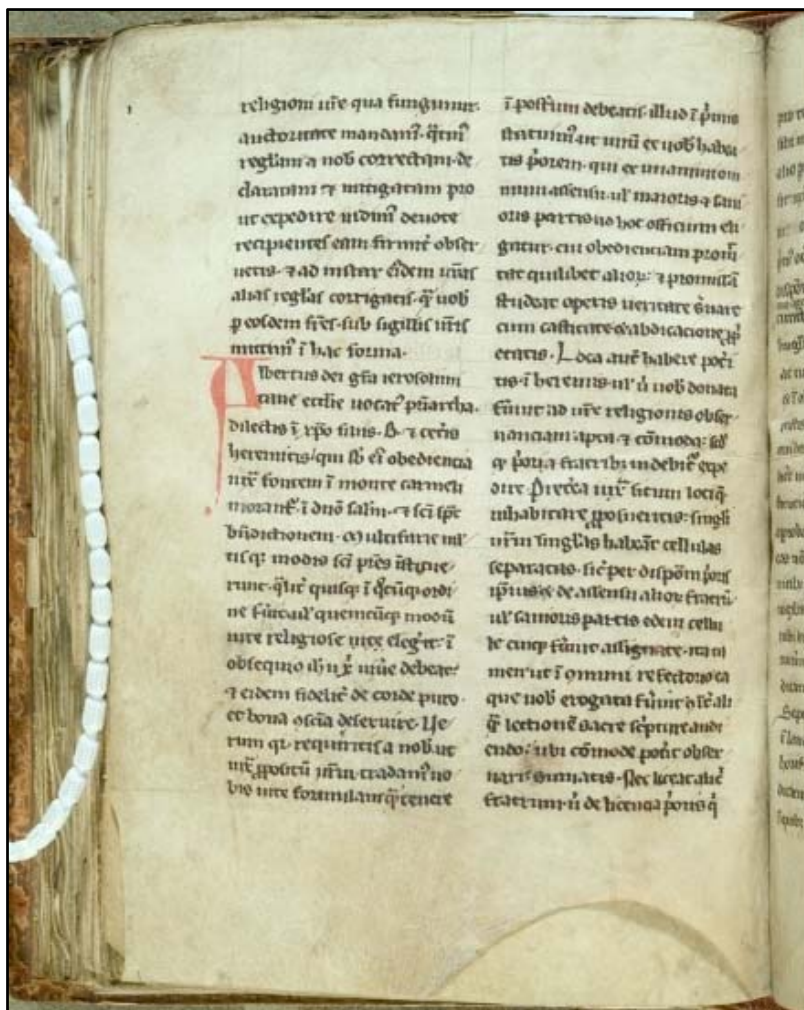 religioni ur̄e qua fungimur
auctoritate mandam᷒ q̄tin᷒
regl̄am a nob̄ correctam de
claratam ⁊ mitigatam pro
ut expedire uidim᷒ deuote
recipientes eam firmit̄ obser
uetis · ⁊ ad instar eiusdem
alias regl̄as corrigatis · q̄ uob̄
p̄ eosdem fr̄es · sub sigillis ur̄is
mittim᷒ ī hac forma ·
Albertus dei gr̄a ierosolimi
tane eccl̄ie uocat᷒ pat̄archa ·
Dilectis ī xp̄o filiis · B · ⁊ cet̄is
heremitis / qui sb̄ ei᷒ obediencia
iux̄ fontem ī monte carmeli
morant᷒ · ī dn̄o salm̄ · ⁊ sc̄i sp̄c
bn̄dictionem · Multifarie ml̄
tisq; modis sc̄i pr̄es īstitue
runt · qͥlit̄ quisq; ī qͦcūq; ordi
ne fūit ul̄ quemcūq; modū
uite religiose uite eleḡit · ī
obsequio ih̄u xp̄i uiue debeat ·
⁊ eidem fidelit̄ de corde puro
et bona ꝯscia deseruire · Ue
rum qͥ requiritis a nob̄ · ut
iux̄ ꝓpositū ur̄m tradam᷒ uo
bis uite formulam q̄ tenere
ī post̄um debeatis · illud ī pͥmis
statuim᷒ ut unū ex uob̄ habea
tis pͥorem · qui ex unanimi om
nium assensu ul̄ maioris ⁊ sani
oris partis ad hoc officium eli
gatur · cui obedienciam promi
tat quilibet alioꝝ · ⁊ promissā
studeat operis ueritate ẜuare
cum castitate ⁊ abdicacione ꝓp
etatis · Loca aut̄ habere pot̄i
tis · ī heremis ul̄ u᷒ uob̄ donata
fūint ad ur̄e religionis obser
uanciam apta ⁊ cōmoda · sed̄
q̄ pͥori ⁊ fratrib᷒ uidebit̄ expe
dire · Pret̄ea iux̄ situm loci q̄
inhabitare ꝓposueritis · singli
ur̄m singl̄as habeāt cellulas
separatas · sic̄ per dispōm pͥoris
ip̄ius ⁊ de assensu alioꝝ fratrū
ul̄ sanioris partis eedem cellu
le cuiq; fūint assignate · ita ta
men ut ī ꝯmuni refectorio ea
que uob̄ erogata fūint ꝯit̄ ali
q̄ lectionē sacre scͥpture audi
endo · ubi cōmode pot̄it obser
uari sumatis · Nec liceat alic̄
fratrum · n̄ de licencia pͥoris qͥ